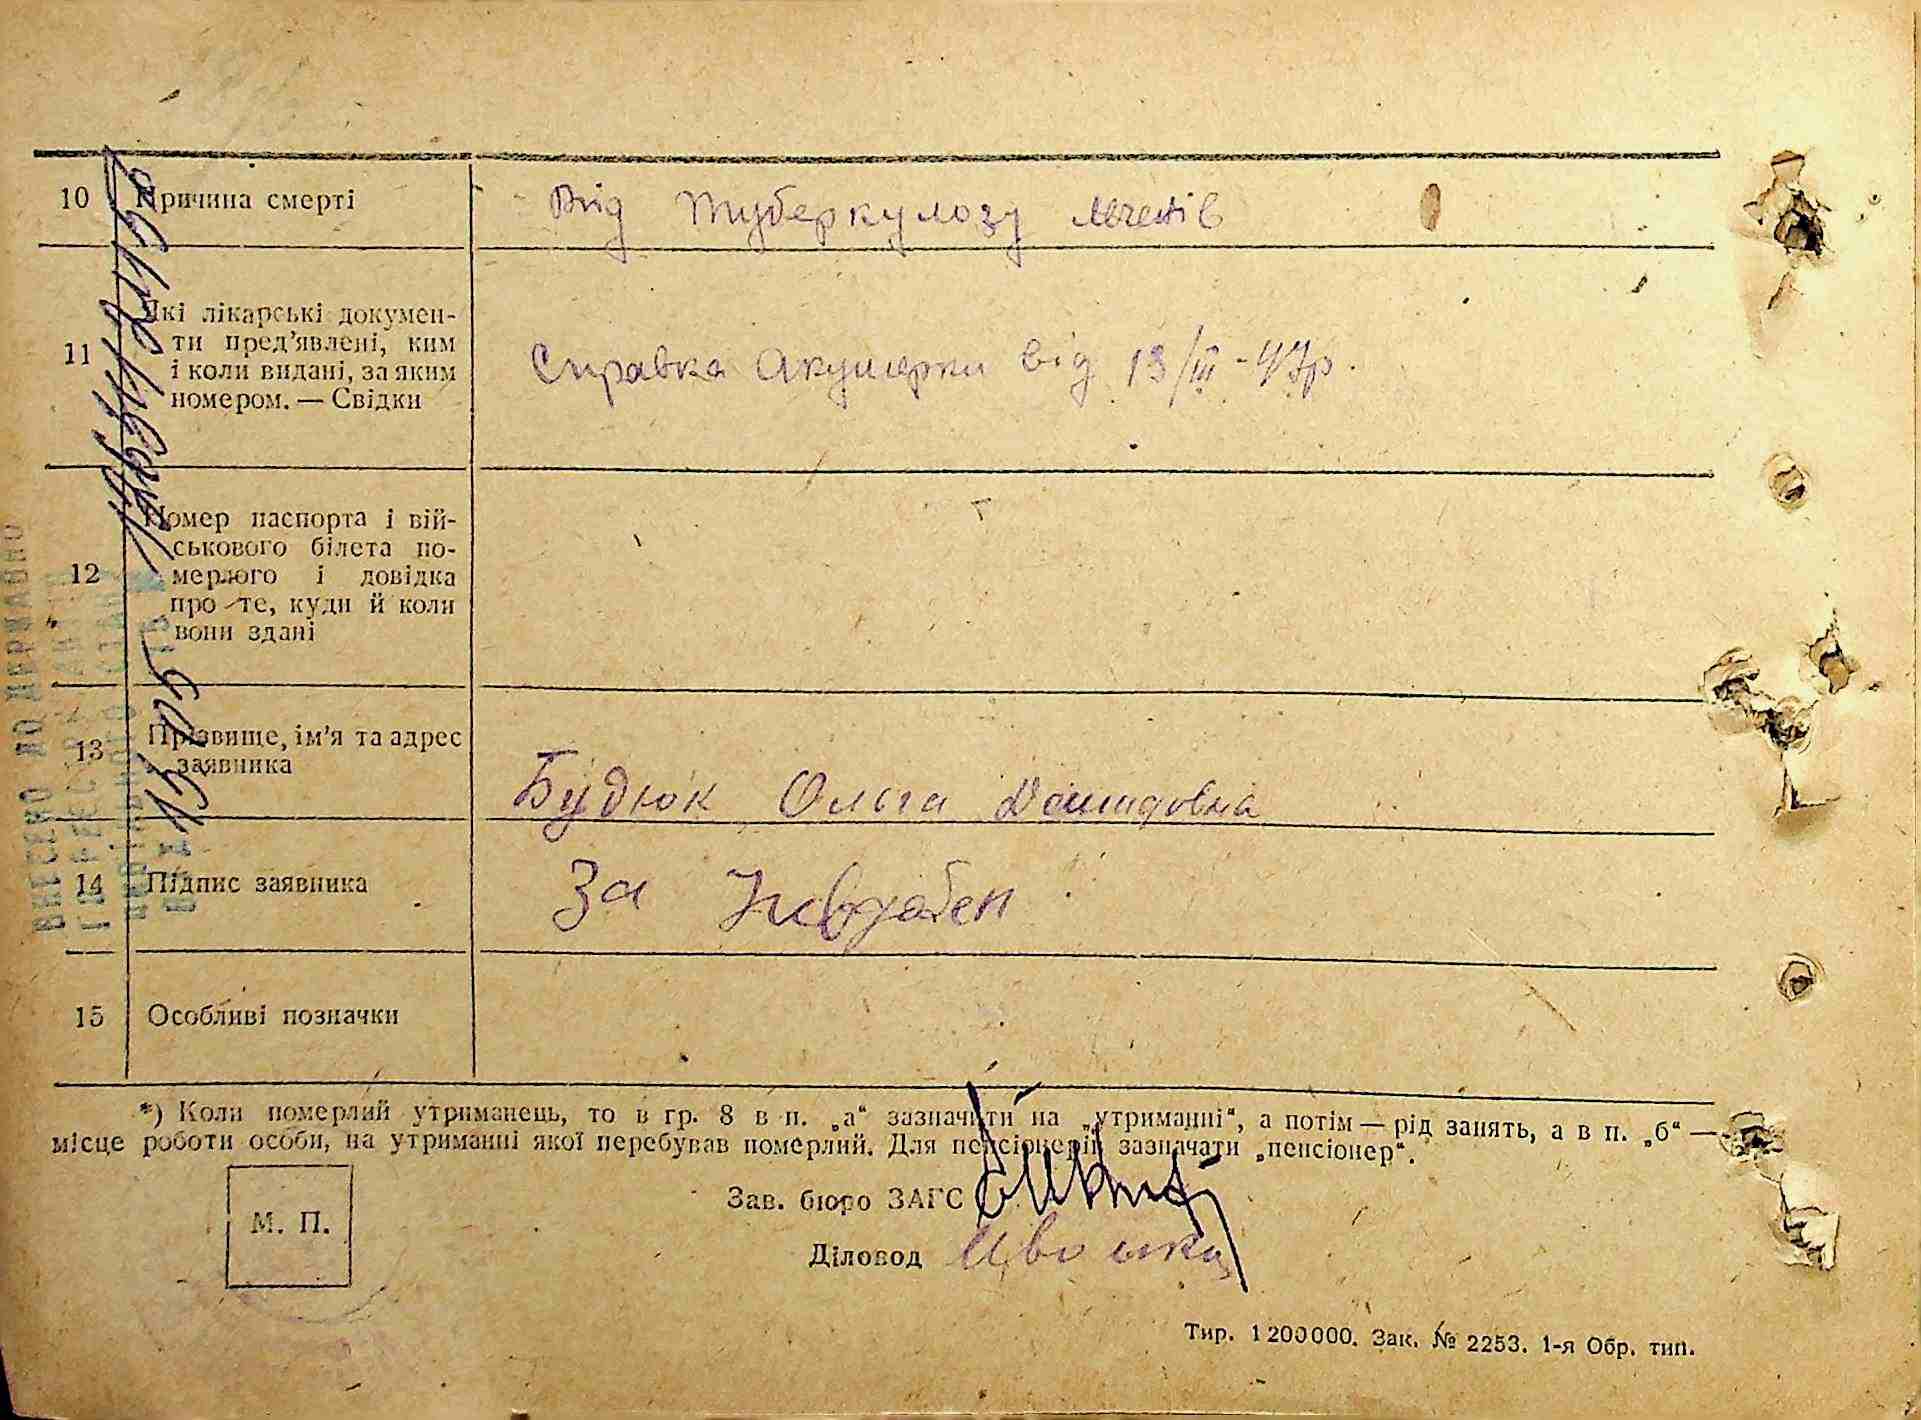 10 Причина смерті Від туберкулозу легенів
11 Які лікарські докумен-
ти пред’явлені, ким
і коли видані, за яким
номером. — Свідки
Справка Акушерки від 13/III-47р.
12 Номер паспорта і вій-
ськового білета по-
мерлого і довідка
про те, куди й коли
вони здані
13 Прізвище, ім’я та адрес
заявника
Будюк Ольга Демидовна
14 Підпис заявника За
15 Особливі позначки
*) Коли померлий утриманець, то в гр. 8 в п. „а“ зазначити на „утриманні“, а потім — рід занять, а в п. „б“ —
місце роботи особи, на утриманні якої перебував померлий. Для пенсіонерів зазначати „пенсіонер“.
М. П.
Зав. бюро ЗАГС
Діловод
Тир. 1200000. Зак. № 2253. 1-я Обр. тип.
ВНЕСЕНО ДО ДЕРЖАВНО